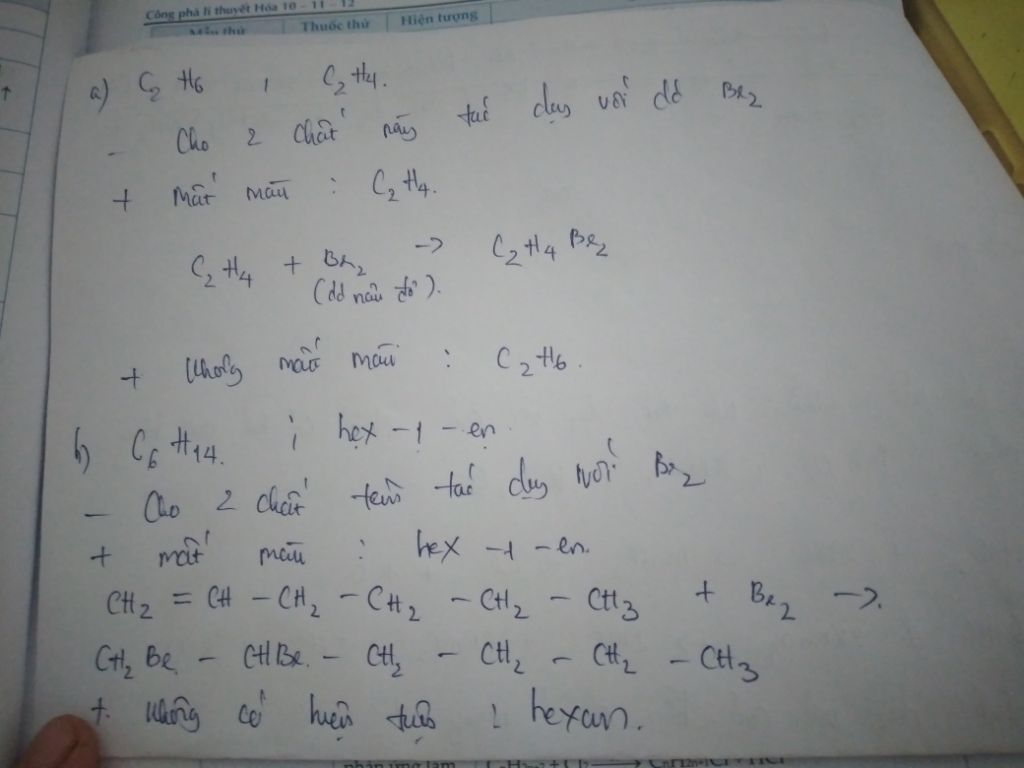 Công phá lí thuyết Hóa 10 – 11 – 12
Mẫu thử Thuốc thử Hiện tượng
a) C2H6 , C2H4.
- Cho 2 chất này tác dụng với dd Br2
+ Mất màu : C2H4.
C2H4 + Br2 -> C2H4Br2
(dd nâu đỏ).
+ Không mất màu : C2H6.
b) C6H14. ; hex - 1 - en.
- Cho 2 chất trên tác dụng với Br2
+ mất màu : hex - 1 - en.
CH2 = CH - CH2 - CH2 - CH2 - CH3 + Br2 ->.
CH2Br - CHBr - CH2 - CH2 - CH2 - CH3
+ Không có hiện tượng : hexan.
phản ứng làm